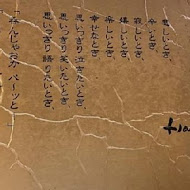 悲しいとき、
辛いとき、
寂しいとき、
嬉しいとき、
楽しいとき、
幸せなとき、
思いっきり泣きたいとき、
思いっきり笑いたいとき、
思いっきり語りたいとき、